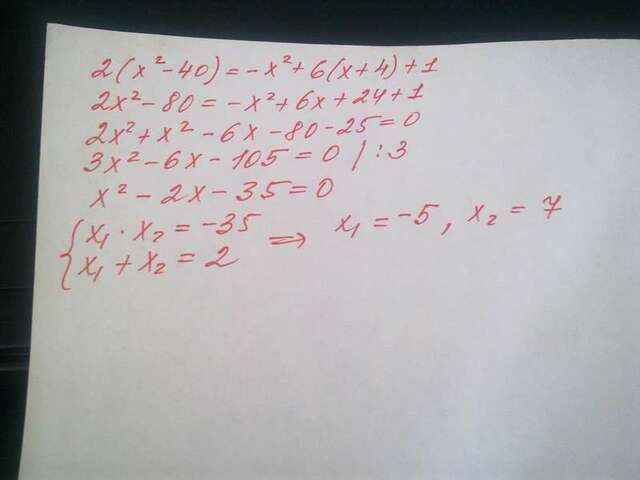 2(x²-40)=-x²+6(x+4)+1
2x²-80=-x²+6x+24+1
2x²+x²-6x-80-25=0
3x²-6x-105=0 |:3
x²-2x-35=0
{x₁·x₂=-35 ⇒ x₁=-5, x₂=7
x₁+x₂=2